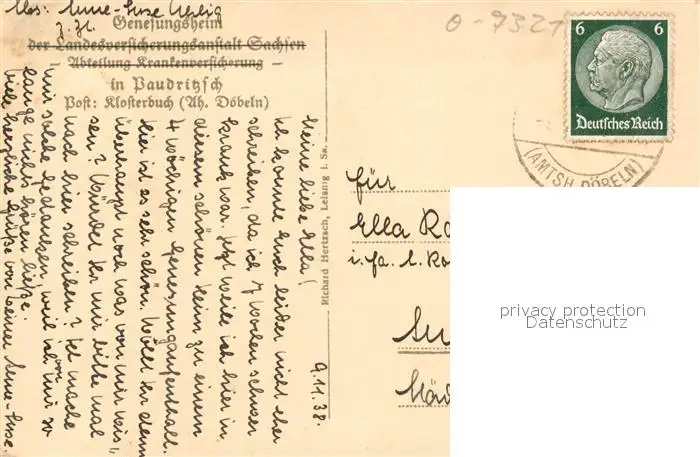 Abs: Anne-Suse
z. Zt.
Genesungsheim
der Landesversicherungsanstalt Sachsen
- Abteilung Krankenversicherung -
in Paudritzsch
Post: Klosterbuch (Ah. Döbeln)
9.11.38.
Meine liebe Ella!
Ich konnte Euch leider nicht eher
schreiben, da ich 7 Wochen schwer
krank war. Jetzt weile ich hier in
diesem schönen Heim zu einem
4 wöchigen Genesungsaufenthalt.
Hier ist es sehr schön. Wollt Ihr denn
überhaupt noch was von mir wis-
sen? Würdet Ihr mir bitte mal
nach hier schreiben? Ich mache
mir solche Gedanken, weil ich von mir so
lange nichts hören ließe.
Viele herzliche Grüße von Deiner Anne-Suse.
Richard Hertzsch, Leisnig i. Sa.
0-7321
6 6
Deutsches Reich
(AMTSH. DÖBELN)
für
Ella
i. Fa.
privacy protection
Datenschutz